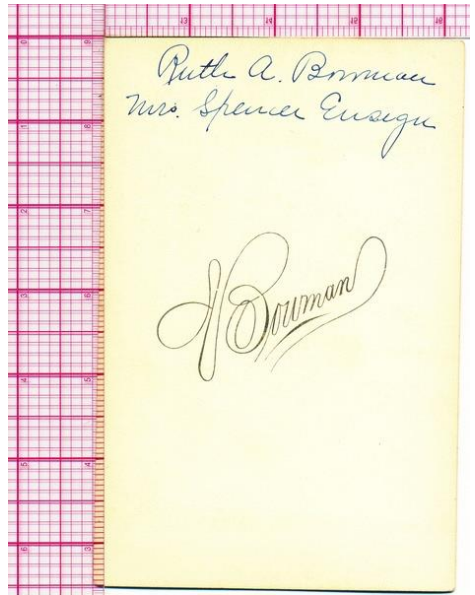 Ruth A. Bowman
Mrs. Spencer Ensign
Bowman